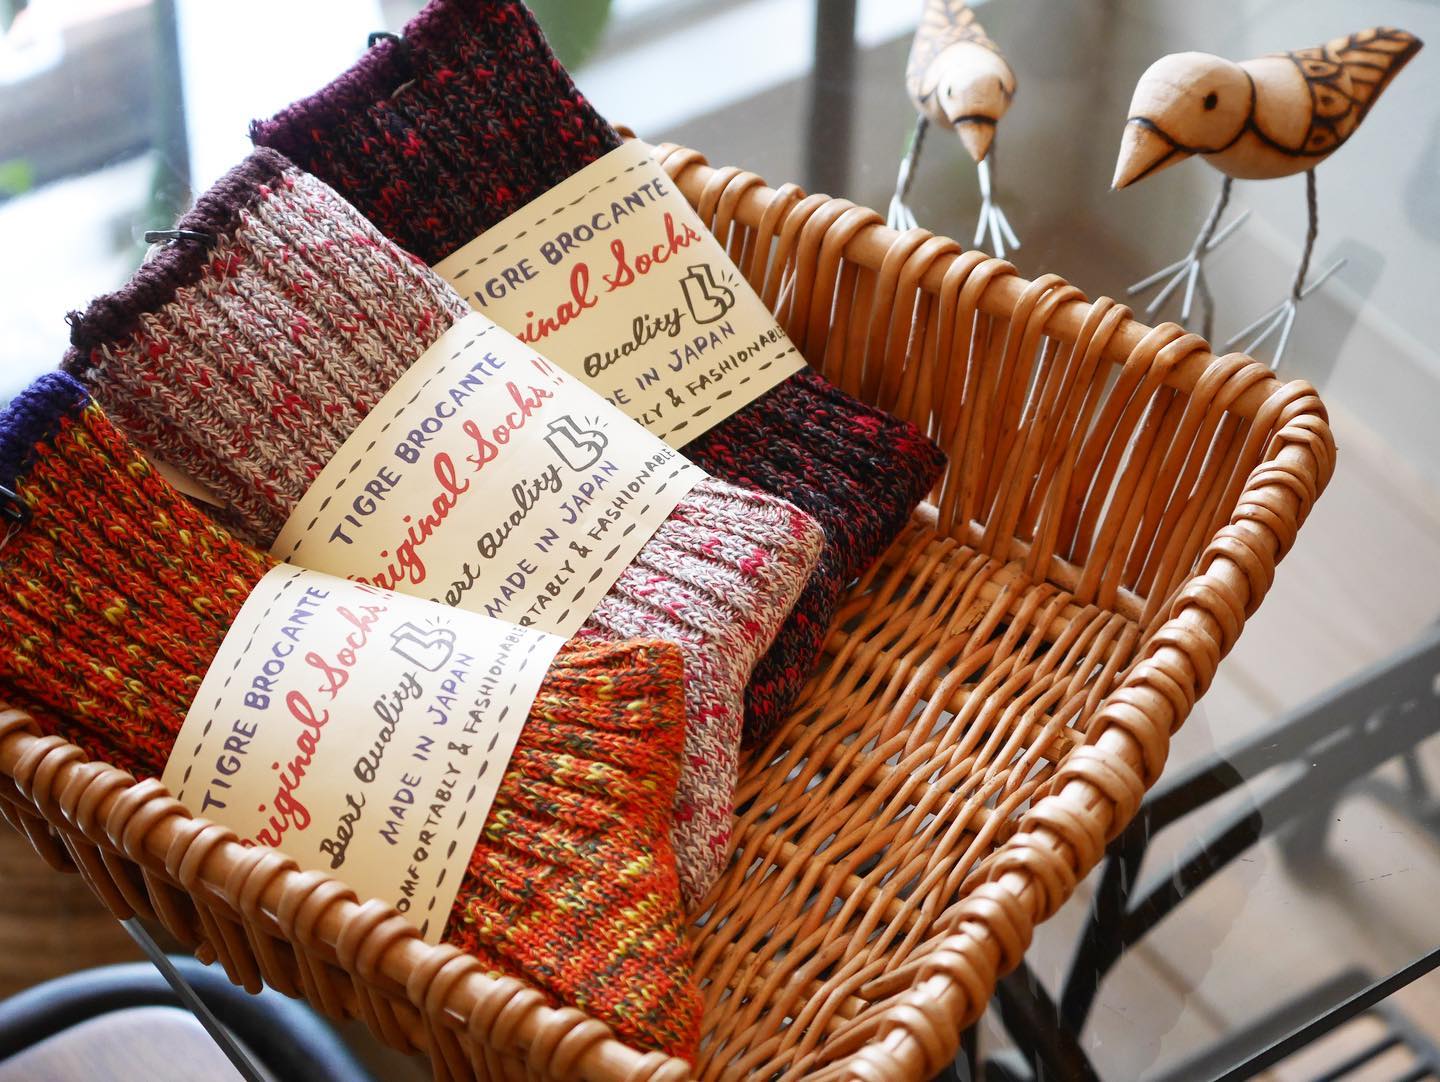 TIGRE BROCANTE
Original Socks!!
Best Quality
MADE IN JAPAN
OMFORTABLY & FASHIONABLE
TIGRE BROCANTE
Original Socks!!
Best Quality
MADE IN JAPAN
RTABLY & FASHIONABLE
TIGRE BROCANTE
ginal Socks
Quality
DE IN JAPAN
BLY & FASHIONABLE